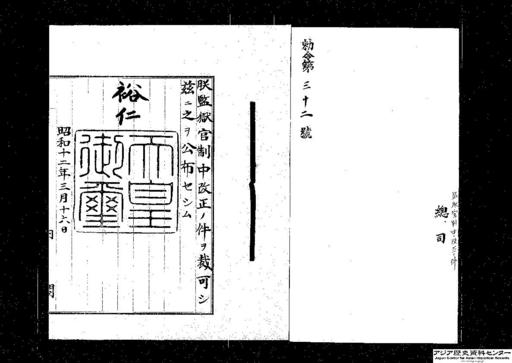 勅令第三十二號
總、司
朕監獄官制中改正ノ件ヲ裁可シ
茲ニ之ヲ公布セシム
裕仁
天皇御璽
昭和十二年三月十六日
内閣
アジア歴史資料センター
Japan Center for Asian Historical Records